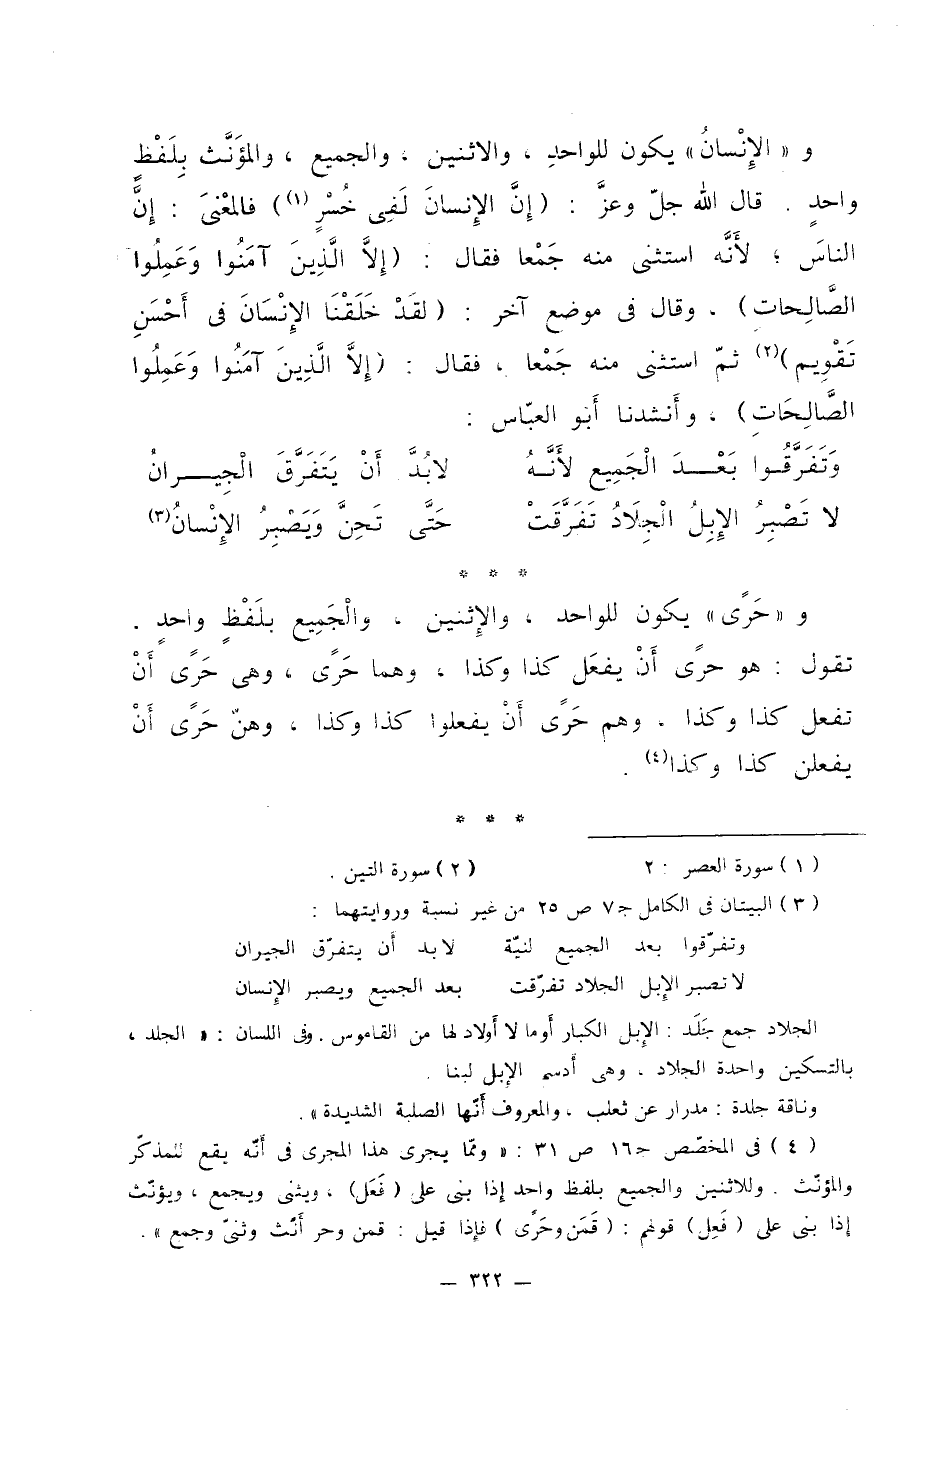 و « الإِنْسانُ» يكون للواحدِ ، والاثنين ، والجميع ، والمؤَنَّث بِلَفْظٍ
واحدٍ . قال الله جلّ وعزَّ : (إِنَّ الإِنسانَ لَفِى خُسْرٍ(١)) فالمعْنىَ : إِنَّ
الناسَ ؛ لأَنَّه استثنى منه جَمْعا فقال : (إِلاَّ الَّذِينَ آمَنُوا وَعَمِلُوا
الصَّالِحات) . وقال فى موضع آخر : (لقَدْ خَلَقْنَا الإِنْسَانَ فى أَحْسَنِ
تَقْوِيم)(٢) ثمّ استثنى منه جَمْعا ، فقال : (إِلاَّ الَّذِينَ آمَنُوا وَعَمِلُوا
الصَّالِحَاتِ) ، وأَنشدنا أَبو العبّاس :
وَتَفَرَّقُوا بَعْدَ الْجَمِيع لأَنَّهُ لابُدَّ أَنْ يَتَفَرَّقَ الْجِيرانُ
لا تَصْبِرُ الإِبِلُ الْجِلَادُ تَفَرَّقَتْ حَتَّى تَحِنَّ وَيَصْبِرُ الإِنْسانُ(٣)
* * *
و «حَرًى» يكون للواحد ، والإِثنين ، والْجَمِيع بلَفْظٍ واحدٍ .
تقول : هو حرًى أَنْ يفعَل كذا وكذا ، وهما حَرًى ، وهى حَرًى أَنْ
تفعل كذا وكذا . وهم حَرًى أَنْ يفعلوا كذا وكذا ، وهنّ حَرًى أَنْ
يفعلن كذا وكذا(٤) .
* * *
(١) سورة العصر : ٢ (٢) سورة التين .
(٣) البيتان فى الكامل ج٧ ص ٢٥ من غير نسبة وروايتهما :
وتفرّقوا بعد الجميع لنيّة لابد أن يتفرّق الجيران
لا تصبر الإبل الجلاد تفرّقت بعد الجميع ويصبر الإنسان
الجلاد جمع جَلَد : الإبل الكبار أوما لا أولاد لها من القاموس . وفى اللسان : « الجلد ،
بالتسكين واحدة الجلاد ، وهى أدسم الإبل لبنا .
وناقة جلدة : مدرار عن ثعلب ، والمعروف أنّها الصلبة الشديدة » .
(٤) فى المخصّص ج١٦ ص ٣١ : « وممّا يجرى هذا المجرى فى أنّه يقع للمذكّر
والمؤنّث . وللاثنين والجميع بلفظ واحد إذا بنى على (فَعَل) ، ويثنى ويجمع ، ويؤنّث
إذا بنى على (فَعِل) قولهم : (قَمَن وحَرًى) فإذا قيل : قمن وحر أنّث وثنىّ وجمع » .
— ٣٢٢ —